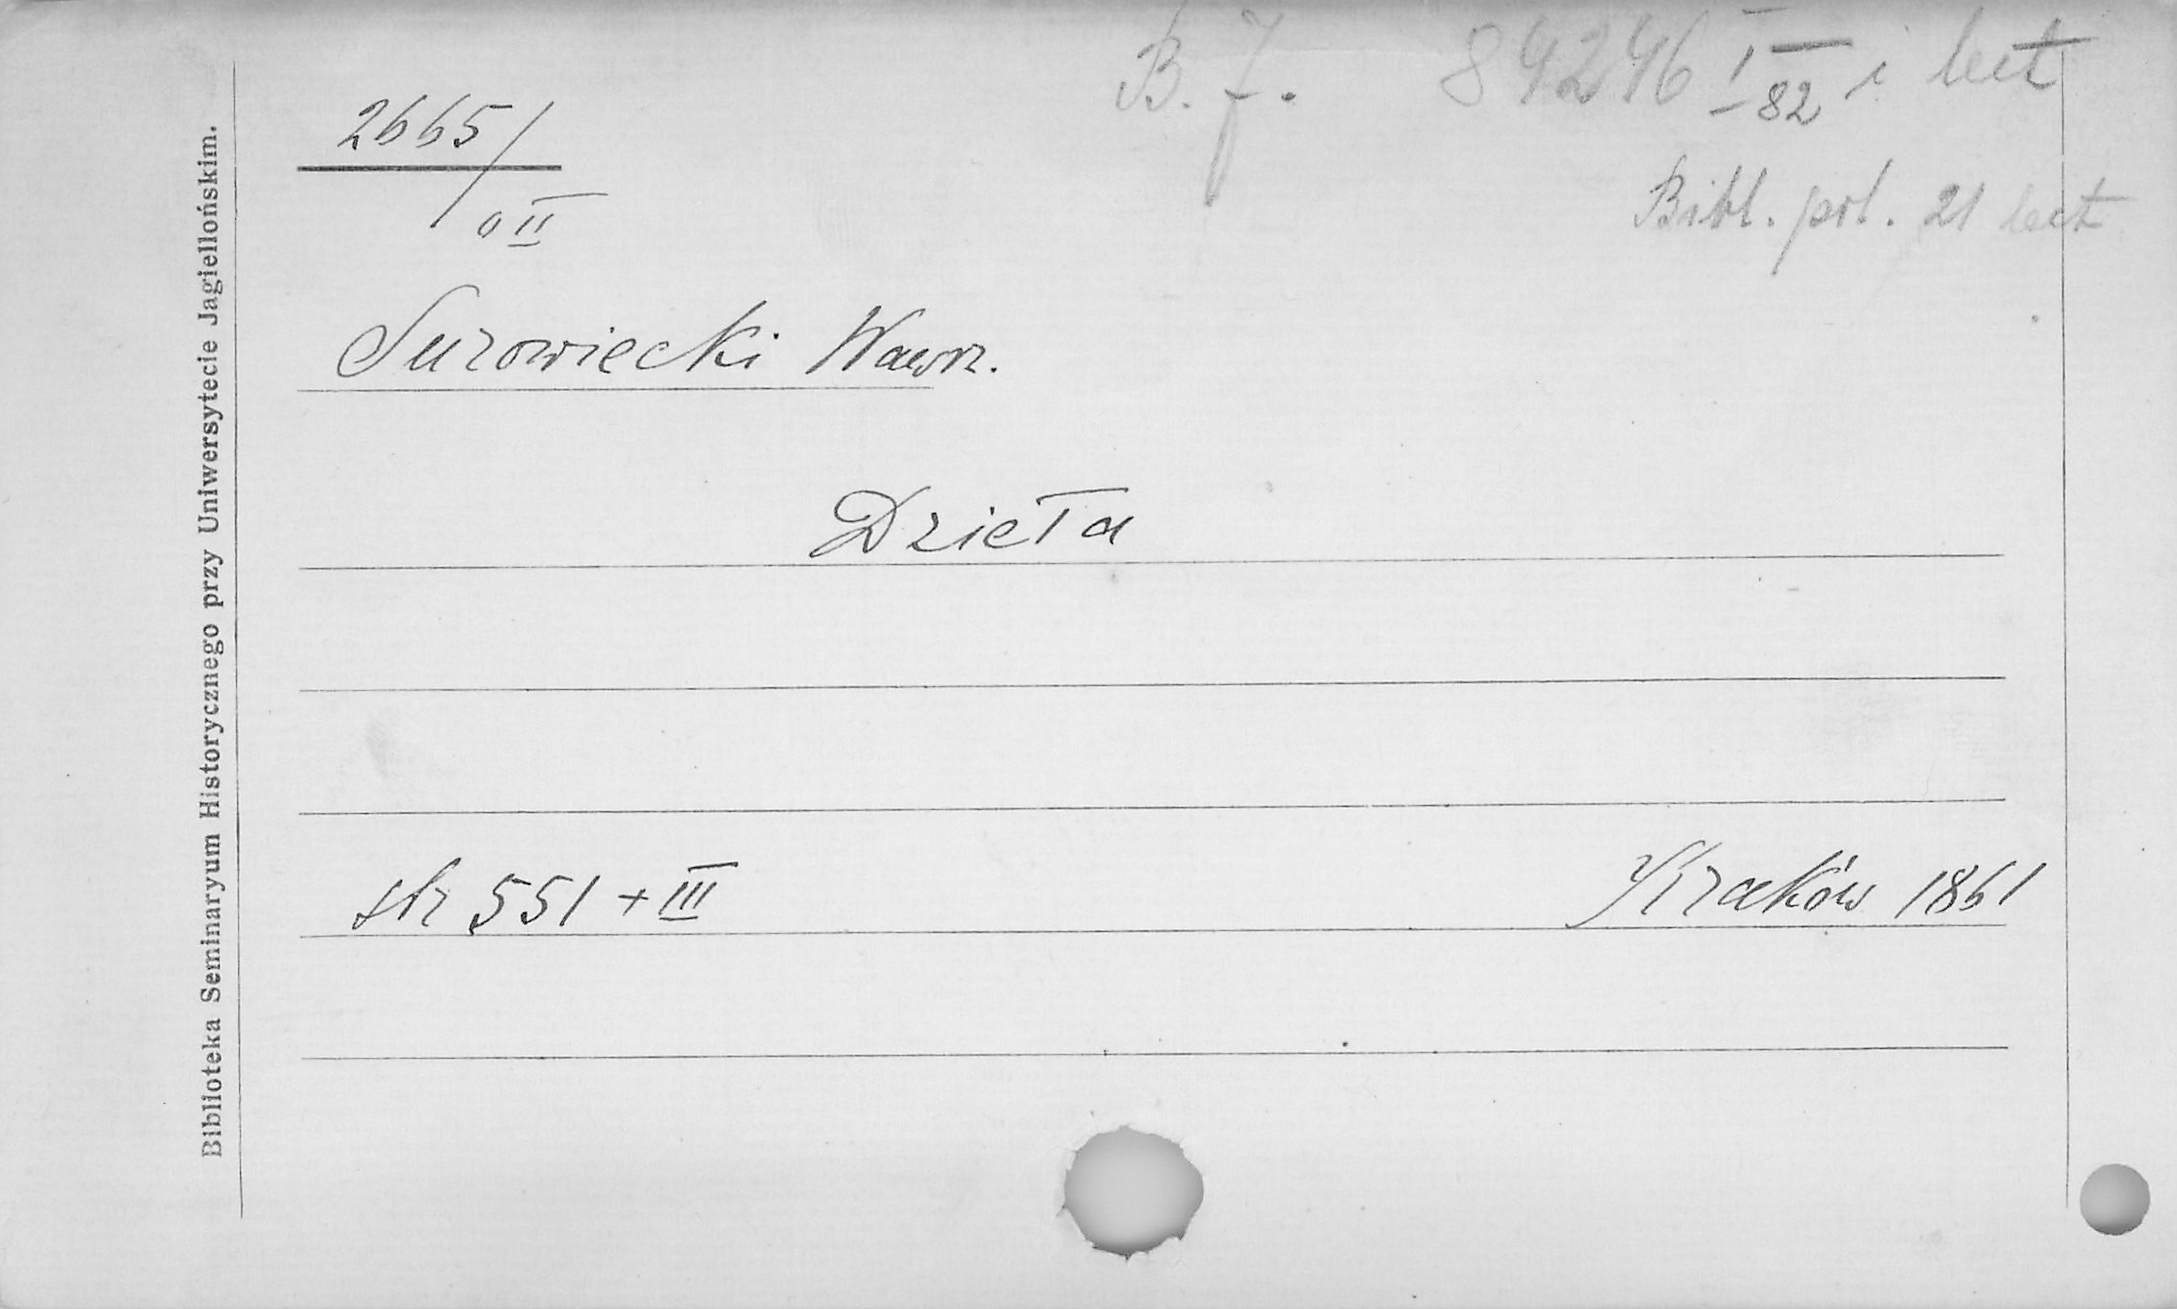 B. J. 84246 I 82 i lect
2665/
0 II
Bibl. pol. 21 lect
Surowiecki Wawrz.
Dzieła
str 551 + III
Kraków 1861
Biblioteka Seminaryum Historycznego przy Uniwersytecie Jagiellońskim.